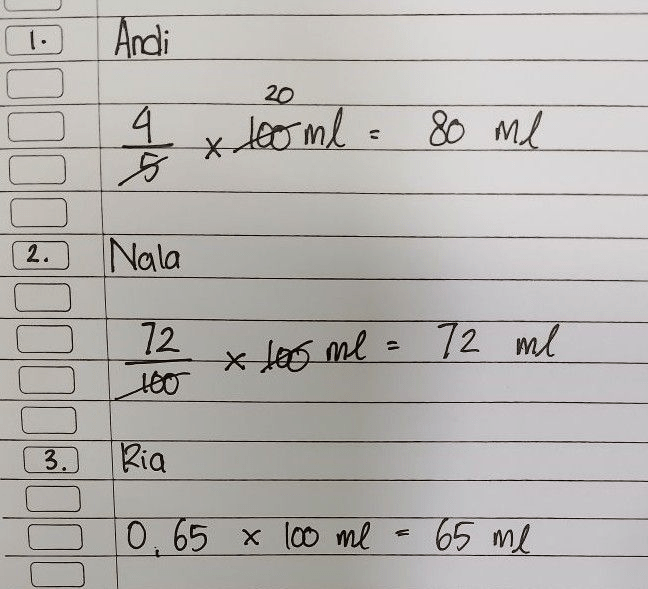 1. Andi
20
4/5 × 100 ml = 80 ml
2. Nala
72/100 × 100 ml = 72 ml
3. Ria
0,65 × 100 ml = 65 ml